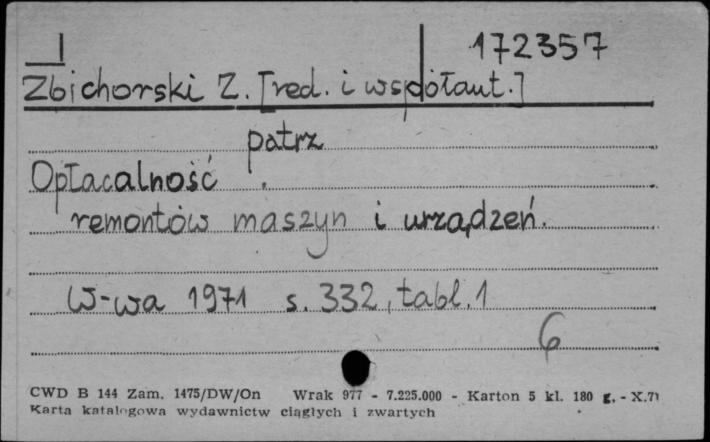 I 172357
Zbichorski Z. [red. i współaut.]
patrz
Opłacalność
remontów maszyn i urządzeń.
W-wa 1971 s. 332, tabl. 1
6
CWD B 144 Zam. 1475/DW/On Wrak 977 - 7.225.000 - Karton 5 kl. 180 g. - X.71
Karta katalogowa wydawnictw ciągłych i zwartych